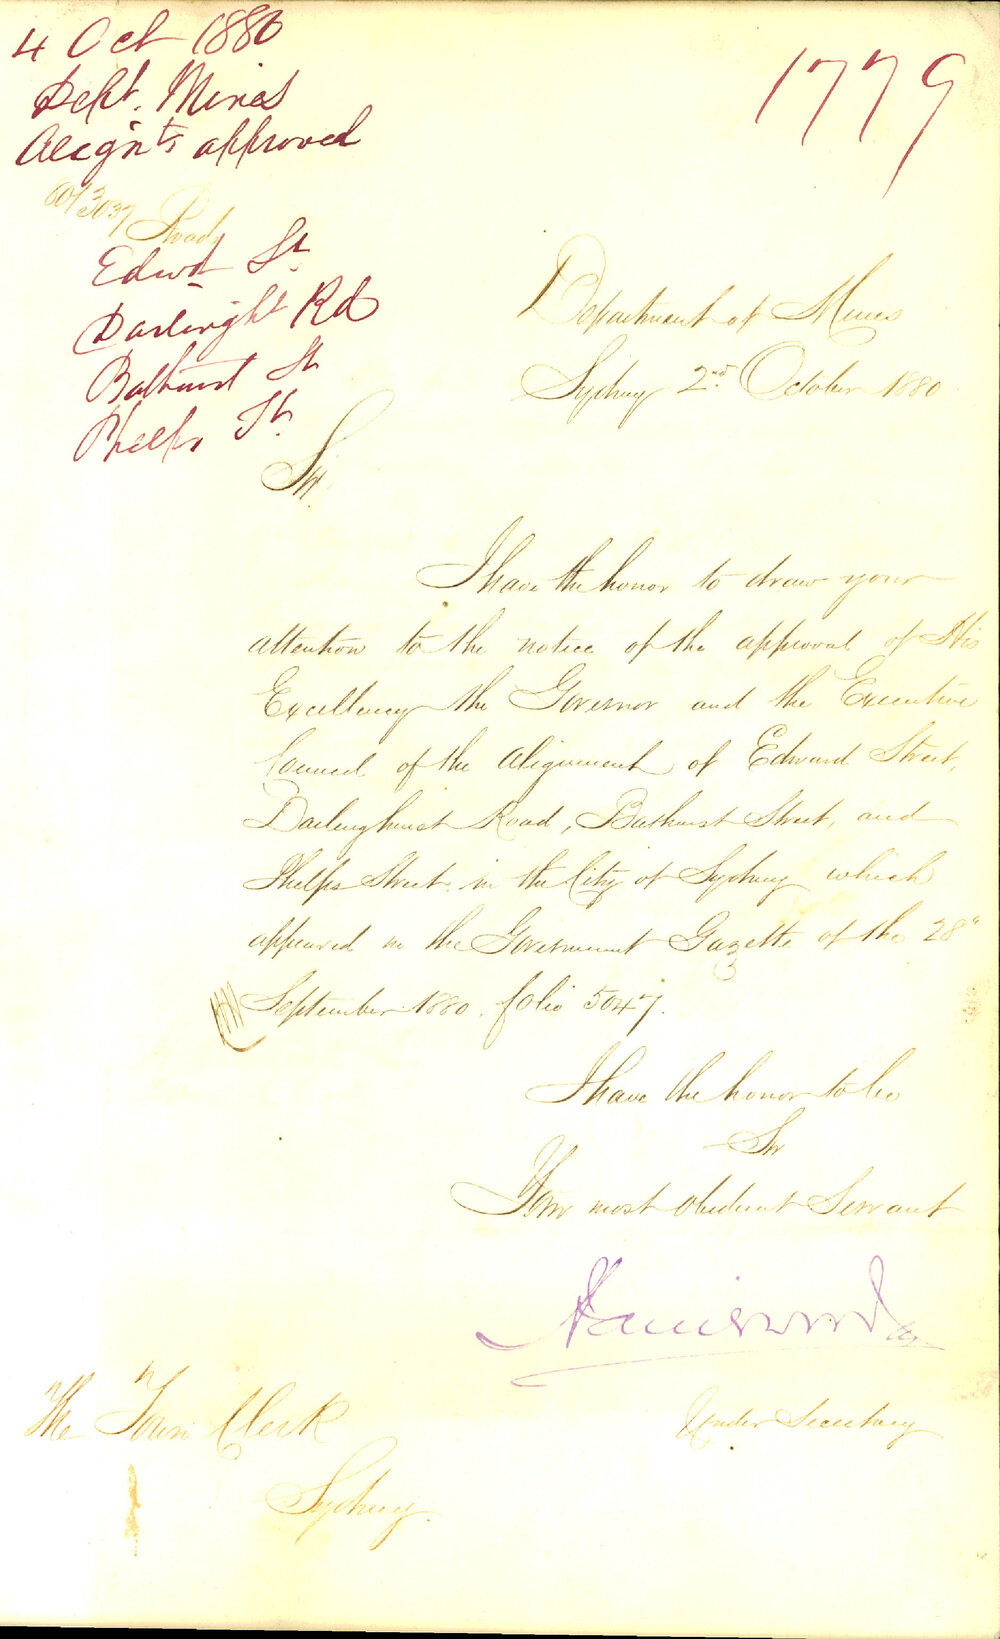 4 Oct 1880
1779
Dept. Mines
Alignts approved
80/3037 Roads
Edwd St
Darlinght Rd
Bathurst St
Phelps St
Department of Mines
Sydney 2nd October 1880
Sir,
I have the honor to draw your
attention to the notice of the approval of His
Excellency the Governor and the Executive
Council of the alignment of Edward Street,
Darlinghurst Road, Bathurst Street, and
Phelps Street in the City of Sydney which
appeared in the Government Gazette of the 28"
September 1880. folio 5047.
I have the honor to be
Sir
Your most obedient Servant
Under Secretary
The Town Clerk
Sydney.